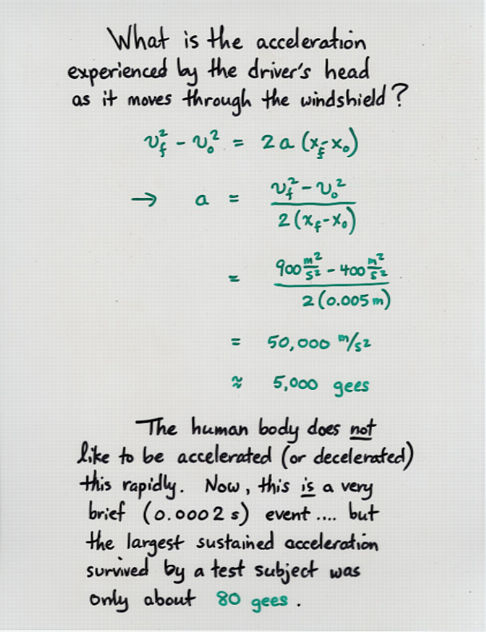 What is the acceleration
experienced by the driver's head
as it moves through the windshield?
v_f² - v_o² = 2a (x_f - x_o)
→ a = (v_f² - v_o²) / (2 (x_f - x_o))
= (900 m²/s² - 400 m²/s²) / (2 (0.005 m))
= 50,000 m/s²
≈ 5,000 gees
The human body does not
like to be accelerated (or decelerated)
this rapidly. Now, this is a very
brief (0.0002 s) event .... but
the largest sustained acceleration
survived by a test subject was
only about 80 gees.